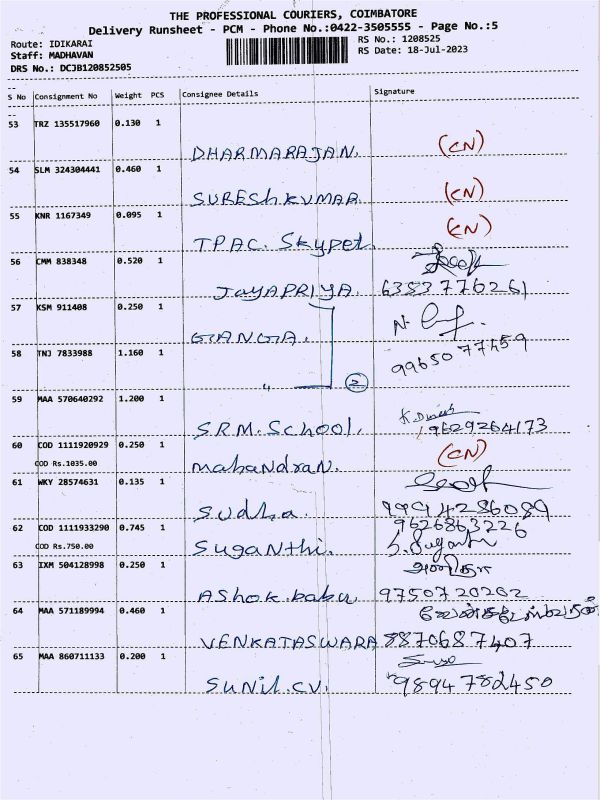 THE PROFESSIONAL COURIERS, COIMBATORE
Delivery Runsheet - PCM - Phone No.:0422-3505555 - Page No.:5
Route: IDIKARAI RS No.: 1208525
Staff: MADHAVAN RS Date: 18-Jul-2023
DRS No.: DCJB120852505
S No Consignment No Weight PCS Consignee Details Signature
53 TRZ 135517960 0.130 1
DHARMARAJAN. (CN)
54 SLM 324304441 0.460 1
SURESHKUMAR (CN)
55 KNR 1167349 0.095 1 (CN)
TPAC. Skypet.
56 CMM 838348 0.520 1
JayAPRIYA. 6383776261
57 KSM 911408 0.250 1
GANGA.
58 TNJ 7833988 1.160 1 9965077459
" 2
59 MAA 570640292 1.200 1 K.Dinesh
S.R.M. School. 9629264173
60 COD 1111920929 0.250 1 (CN)
COD Rs.1035.00 mahandran.
61 WKY 28574631 0.135 1
Sudha. 9994286089
62 COD 1111933290 0.745 1 9626863226
COD Rs.750.00 Suganthi. S.Suganthi
63 IXM 504128998 0.250 1
Ashok.babu. 9750720202
64 MAA 571189994 0.460 1 வெங்கடேஸ்வரன்
VENKATASWARA 8870687407
65 MAA 860711133 0.200 1
Sunil.cv. 9894782450